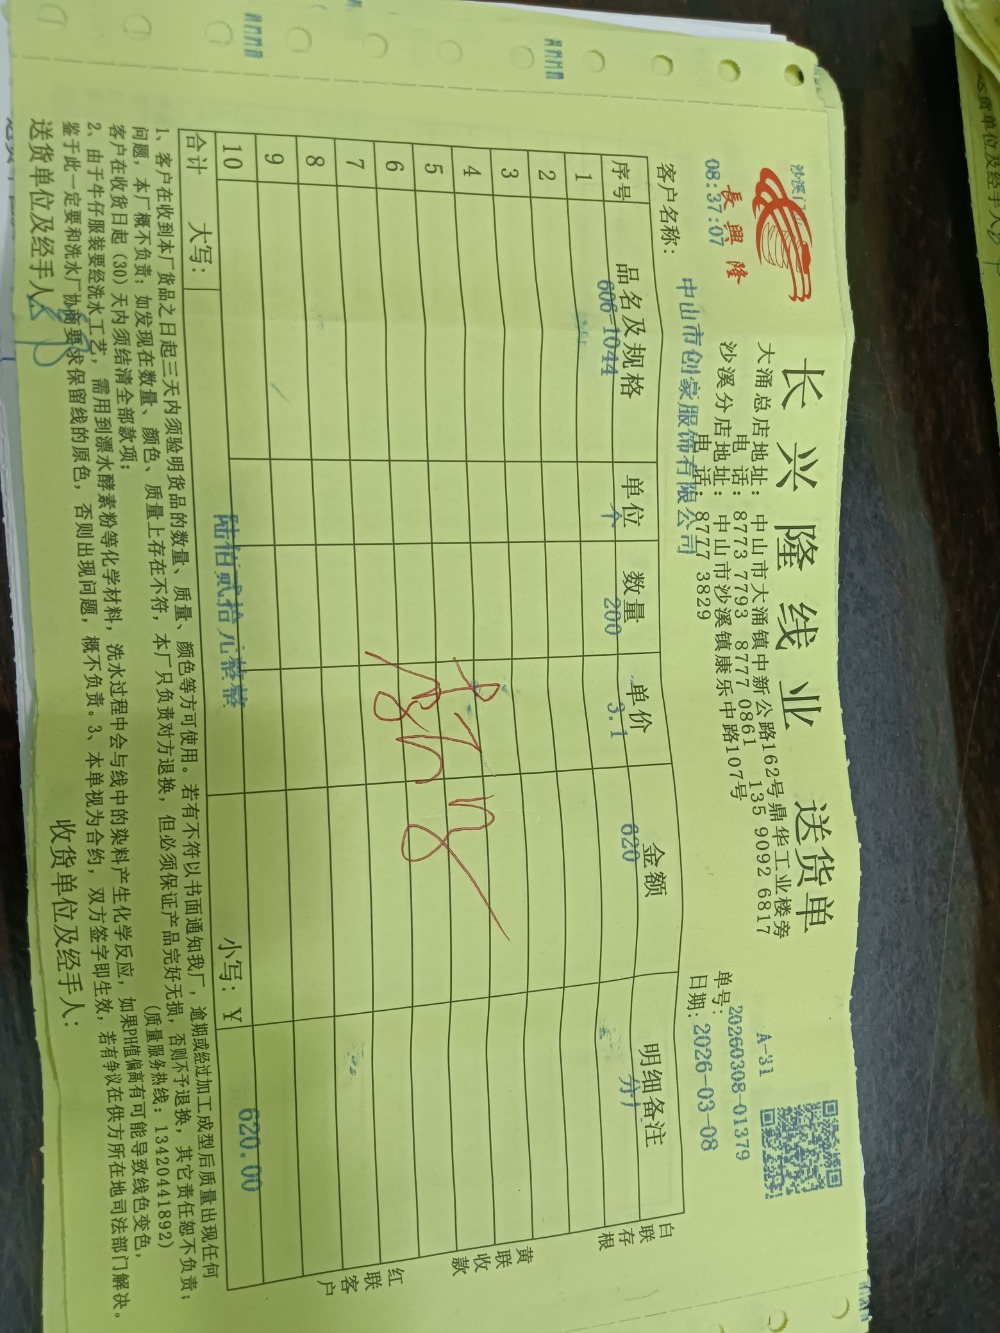 長興隆
长兴隆线业 送货单
大涌总店地址：中山市大涌镇中新公路162号鼎华工业楼旁
电话：8773 7793 8777 0861 135 9092 6817
沙溪分店地址：中山市沙溪镇康乐中路107号
电话：8777 3829
沙溪门
08:37:07
A-31
单号：20260308-01379
日期：2026-03-08
客户名称：中山市创豪服饰有限公司
序号 品名及规格 单位 数量 单价 金额 明细备注
1 606-1044 个 200 3.1 620
2
3
4
5
6
7
8
9
10
合计 大写：陆佰贰拾元整整 小写：￥ 620.00
白联存根
黄联收款
红联客户
1、客户在收到本厂货品之日起三天内须验明货品的数量、质量、颜色等方可使用。若有不符以书面通知我厂，逾期或经过加工成型后质量出现任何
问题，本厂概不负责；如发现在数量、颜色、质量上存在不符，本厂只负责对方退换，但必须保证产品完好无损，否则不予退换，其它责任恕不负责；
客户在收货日起（30）天内须结清全部款项； （质量服务热线：13420441892）
2、由于牛仔服装要经洗水工艺，需用到漂水酵素粉等化学材料，洗水过程中会与线中的染料产生化学反应，如果PH值偏高有可能导致线色变色，
鉴于此一定要和洗水厂协商要求保留线的原色，否则出现问题，概不负责。3、本单视为合约，双方签字即生效，若有争议在供方所在地司法部门解决。
送货单位及经手人： 收货单位及经手人：